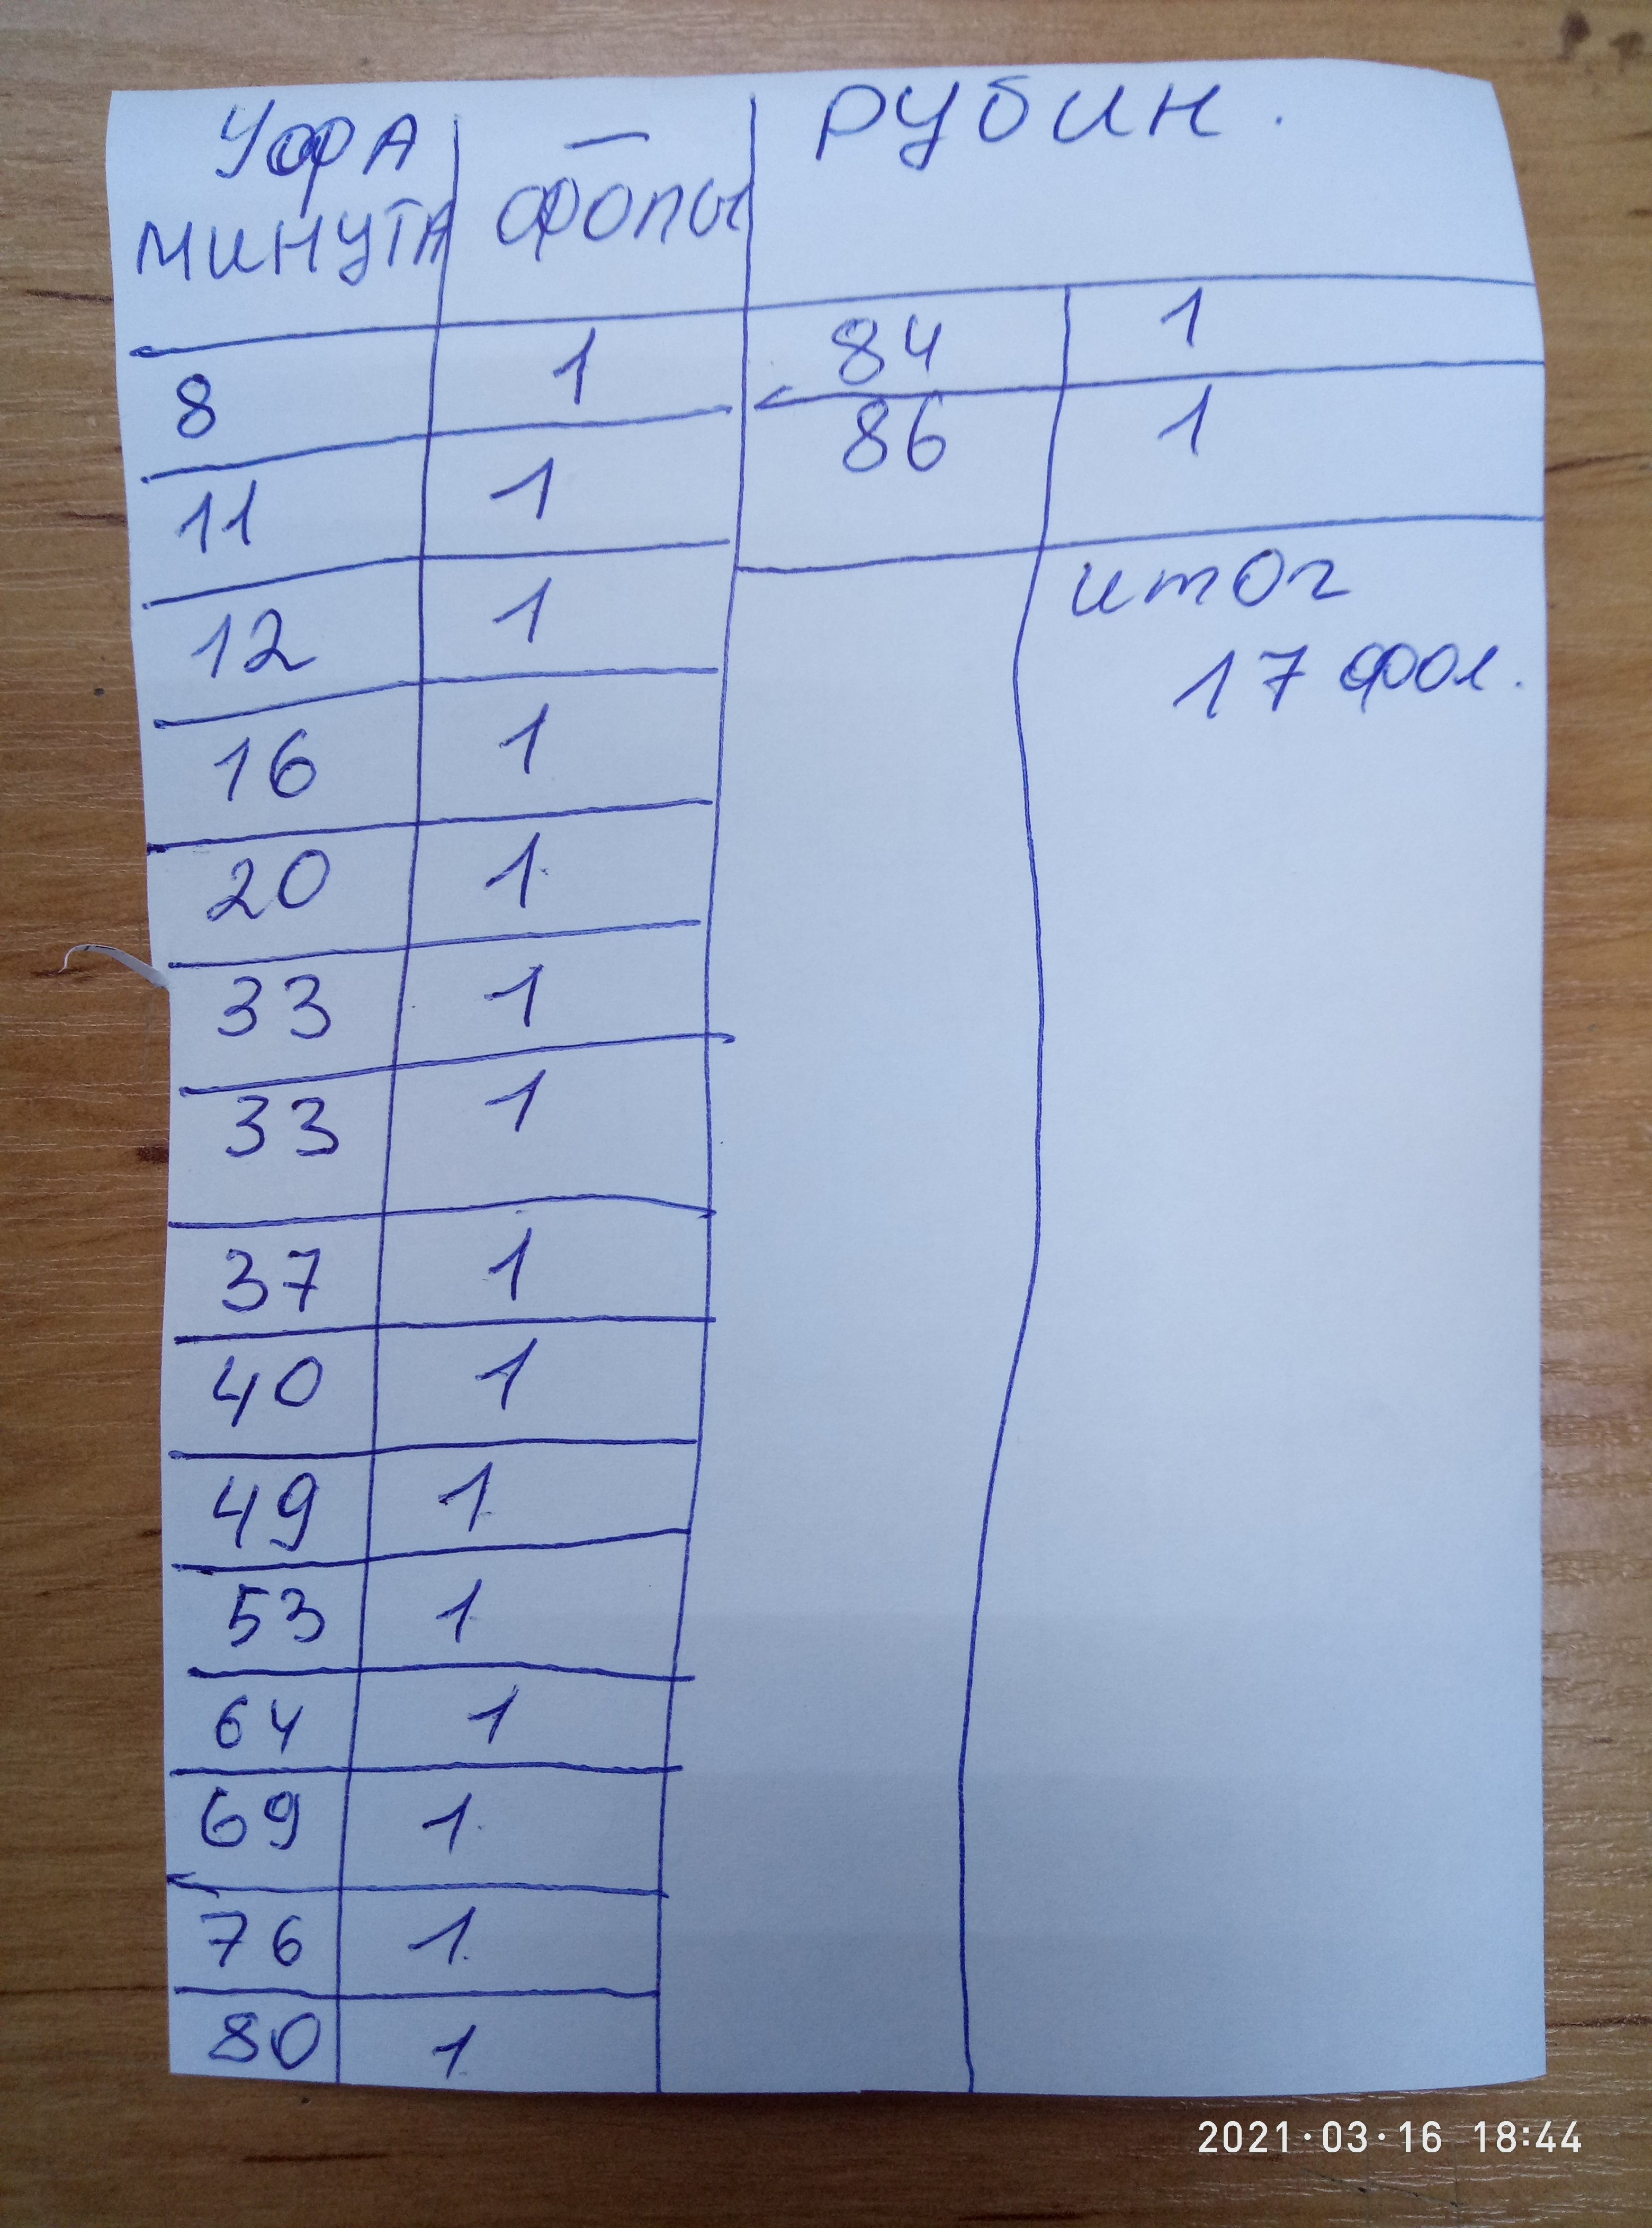 УФА – РУБИН.
МИНУТА ФОЛЫ
8 1
11 1
12 1
16 1
20 1
33 1
33 1
37 1
40 1
49 1
53 1
64 1
69 1
76 1
80 1
84 1
86 1
итог
17 фол.
2021·03·16 18:44